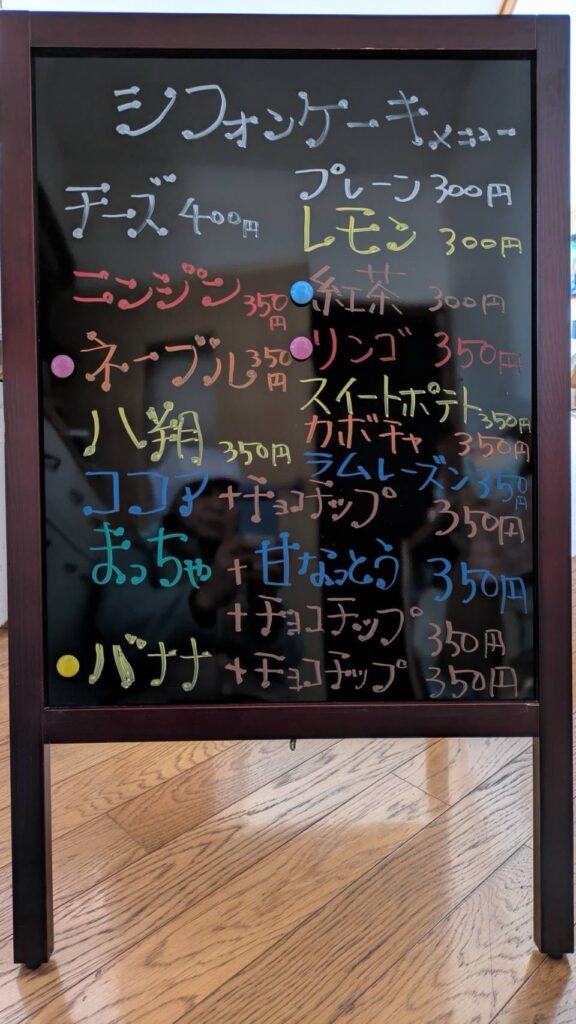 シフォンケーキメニュー
チーズ 400円
プレーン 300円
レモン 300円
ニンジン 350円
紅茶 300円
ネーブル 350円
リンゴ 350円
スイートポテト 350円
八朔 350円
カボチャ 350円
ラムレーズン 350円
ココア+チョコチップ 350円
まっちゃ+甘なっとう 350円
+チョコチップ 350円
バナナ+チョコチップ 350円